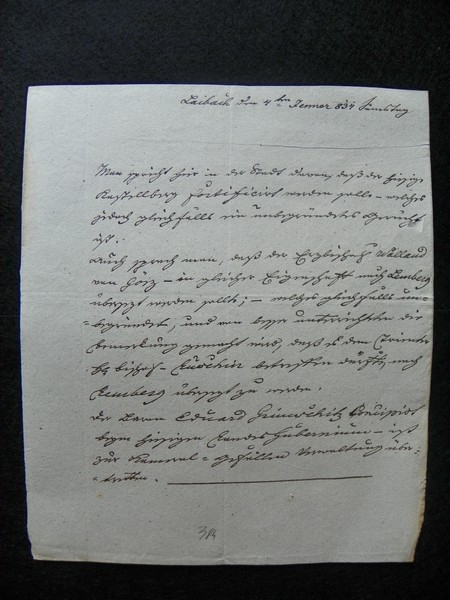 Laibach den 4ten Jenner 834 Samstag
Man spricht hier in der Stadt davon, daß der hiesige
Kastellberg fortificirt werden solle – welches
jedoch gleichfalls ein unbegründetes Gerücht
ist.
Auch sprach man, daß der Erzbischof Walland
von Görz – in gleicher Eigenschaft nach Lemberg
übersetzt werden sollte; – welches gleichfalls un-
begründet, und von besser unterrichteten die
Bemerkung gemacht wird, daß es den Triester
Bischof – betreffen dürfte, nach
Lemberg übersetzt zu werden.
Der Baron Eduard Concipist
beym hiesigen Landes Gubernium – ist
zur Kameral-Gefällen Verwaltung über-
-tretten.
314